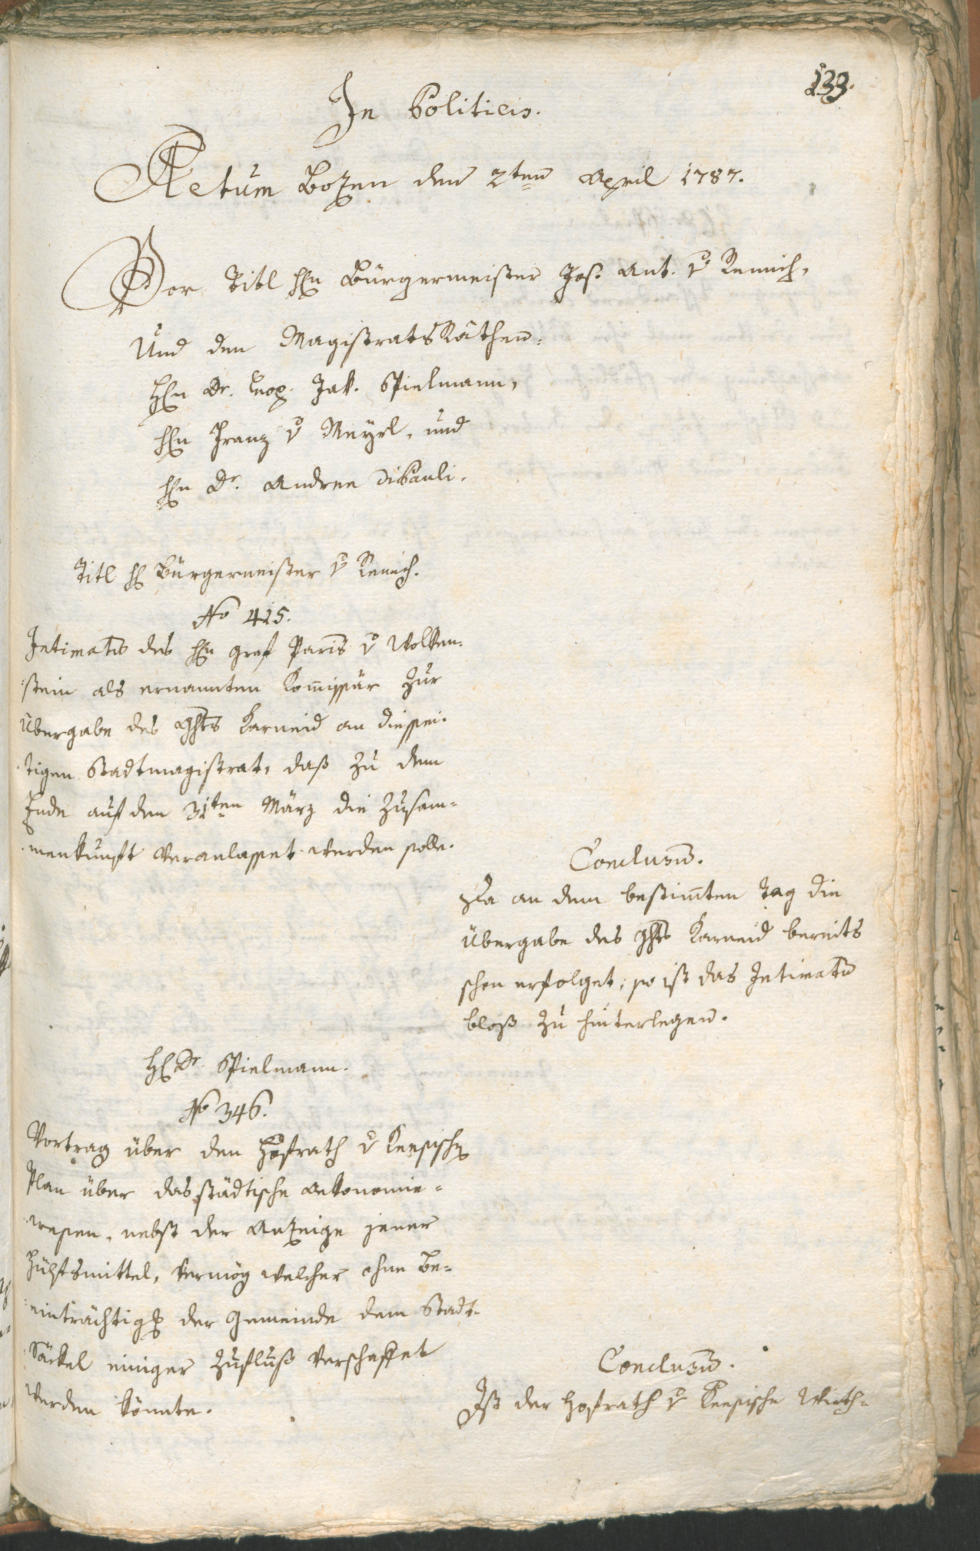 133.
In Politicis.
Actum Bozen den 2ten April 1787.
Vor Titl Hn Bürgermeister Jos. Ant. v Remich,
Und den MagistratsRäthen:
Hn Dr. Leop. Jak. Spielmann,
Hn Franz v Meyrl, und
Hn Dr. Andree diPauli.
Titl H Bürgermeister v Remich.
No 425.
Intimatio des Hn Graf Paris v Wolken-
stein als ernannten Kommissär zur
Übergabe des Ghts Karneid an diessei-
tigen Stadtmagistrat, daß zu dem
Ende auf den 31ten März die Zusam-
menkunft veranlasset werden solle.
Conclusum.
Da an dem bestimmten Tag die
Übergabe des Ghts Karneid bereits
schon erfolget; so ist das Intimatum
bloß zu hinterlegen.
H Dr. Spielmann.
No 346.
Vortrag über den Hofrath v
Plan über das städtische Oekonomie-
wesen, nebst der Anzeige jener
Hülfsmittel, vermög welcher ohne Be-
einträchtigg der Gemeinde dem Stadt-
Säckel einiger Zufluß verschaffet
werden könnte.
Conclusum.
Ist der Hofrath v Wirth-